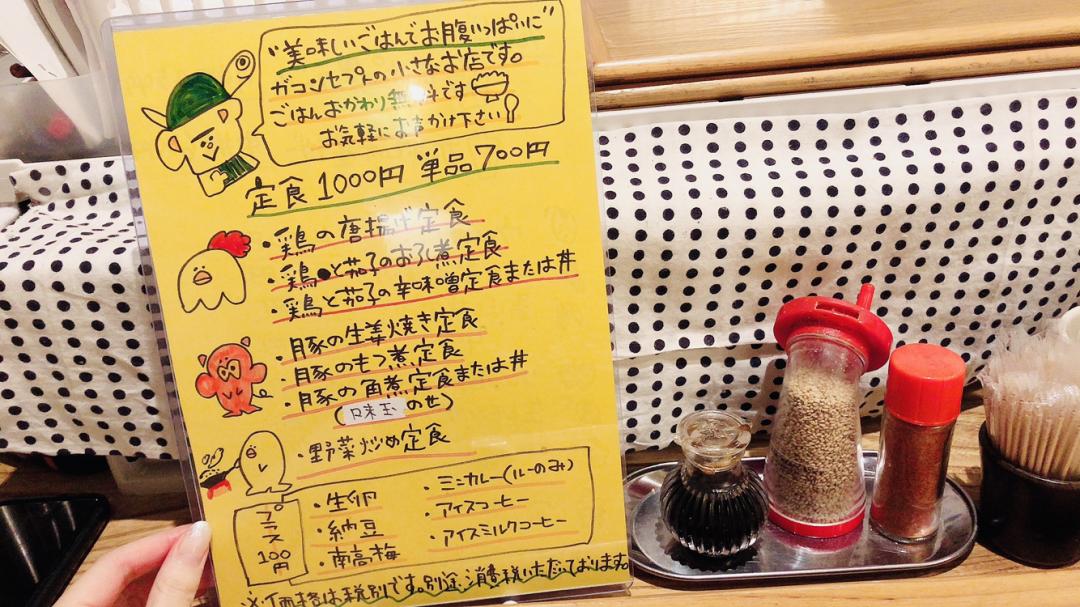 "美味しいごはんでお腹いっぱいに"
がコンセプトの小さなお店です。
ごはんおかわり無料です
お気軽にお声かけ下さい
定食 1000円 単品 700円
・鶏の唐揚げ定食
・鶏と茄子のおろし煮定食
・鶏と茄子の辛味噌定食または丼
・豚の生姜焼き定食
・豚のもつ煮定食
・豚の角煮定食または丼
(味玉のせ)
・野菜炒め定食
プラス100円
・生卵
・納豆
・南高梅
・ミニカレー(ルーのみ)
・アイスコーヒー
・アイスミルクコーヒー
※価格は税別です。別途消費税いただいております。